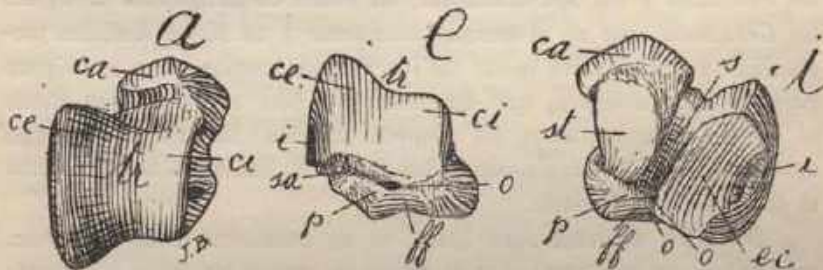 a
ca
ce
tr
ci
J.B.
e
ce
tr
ci
i
sa
o
p
ff
i
ca
s
st
p
ff
o
o
ec